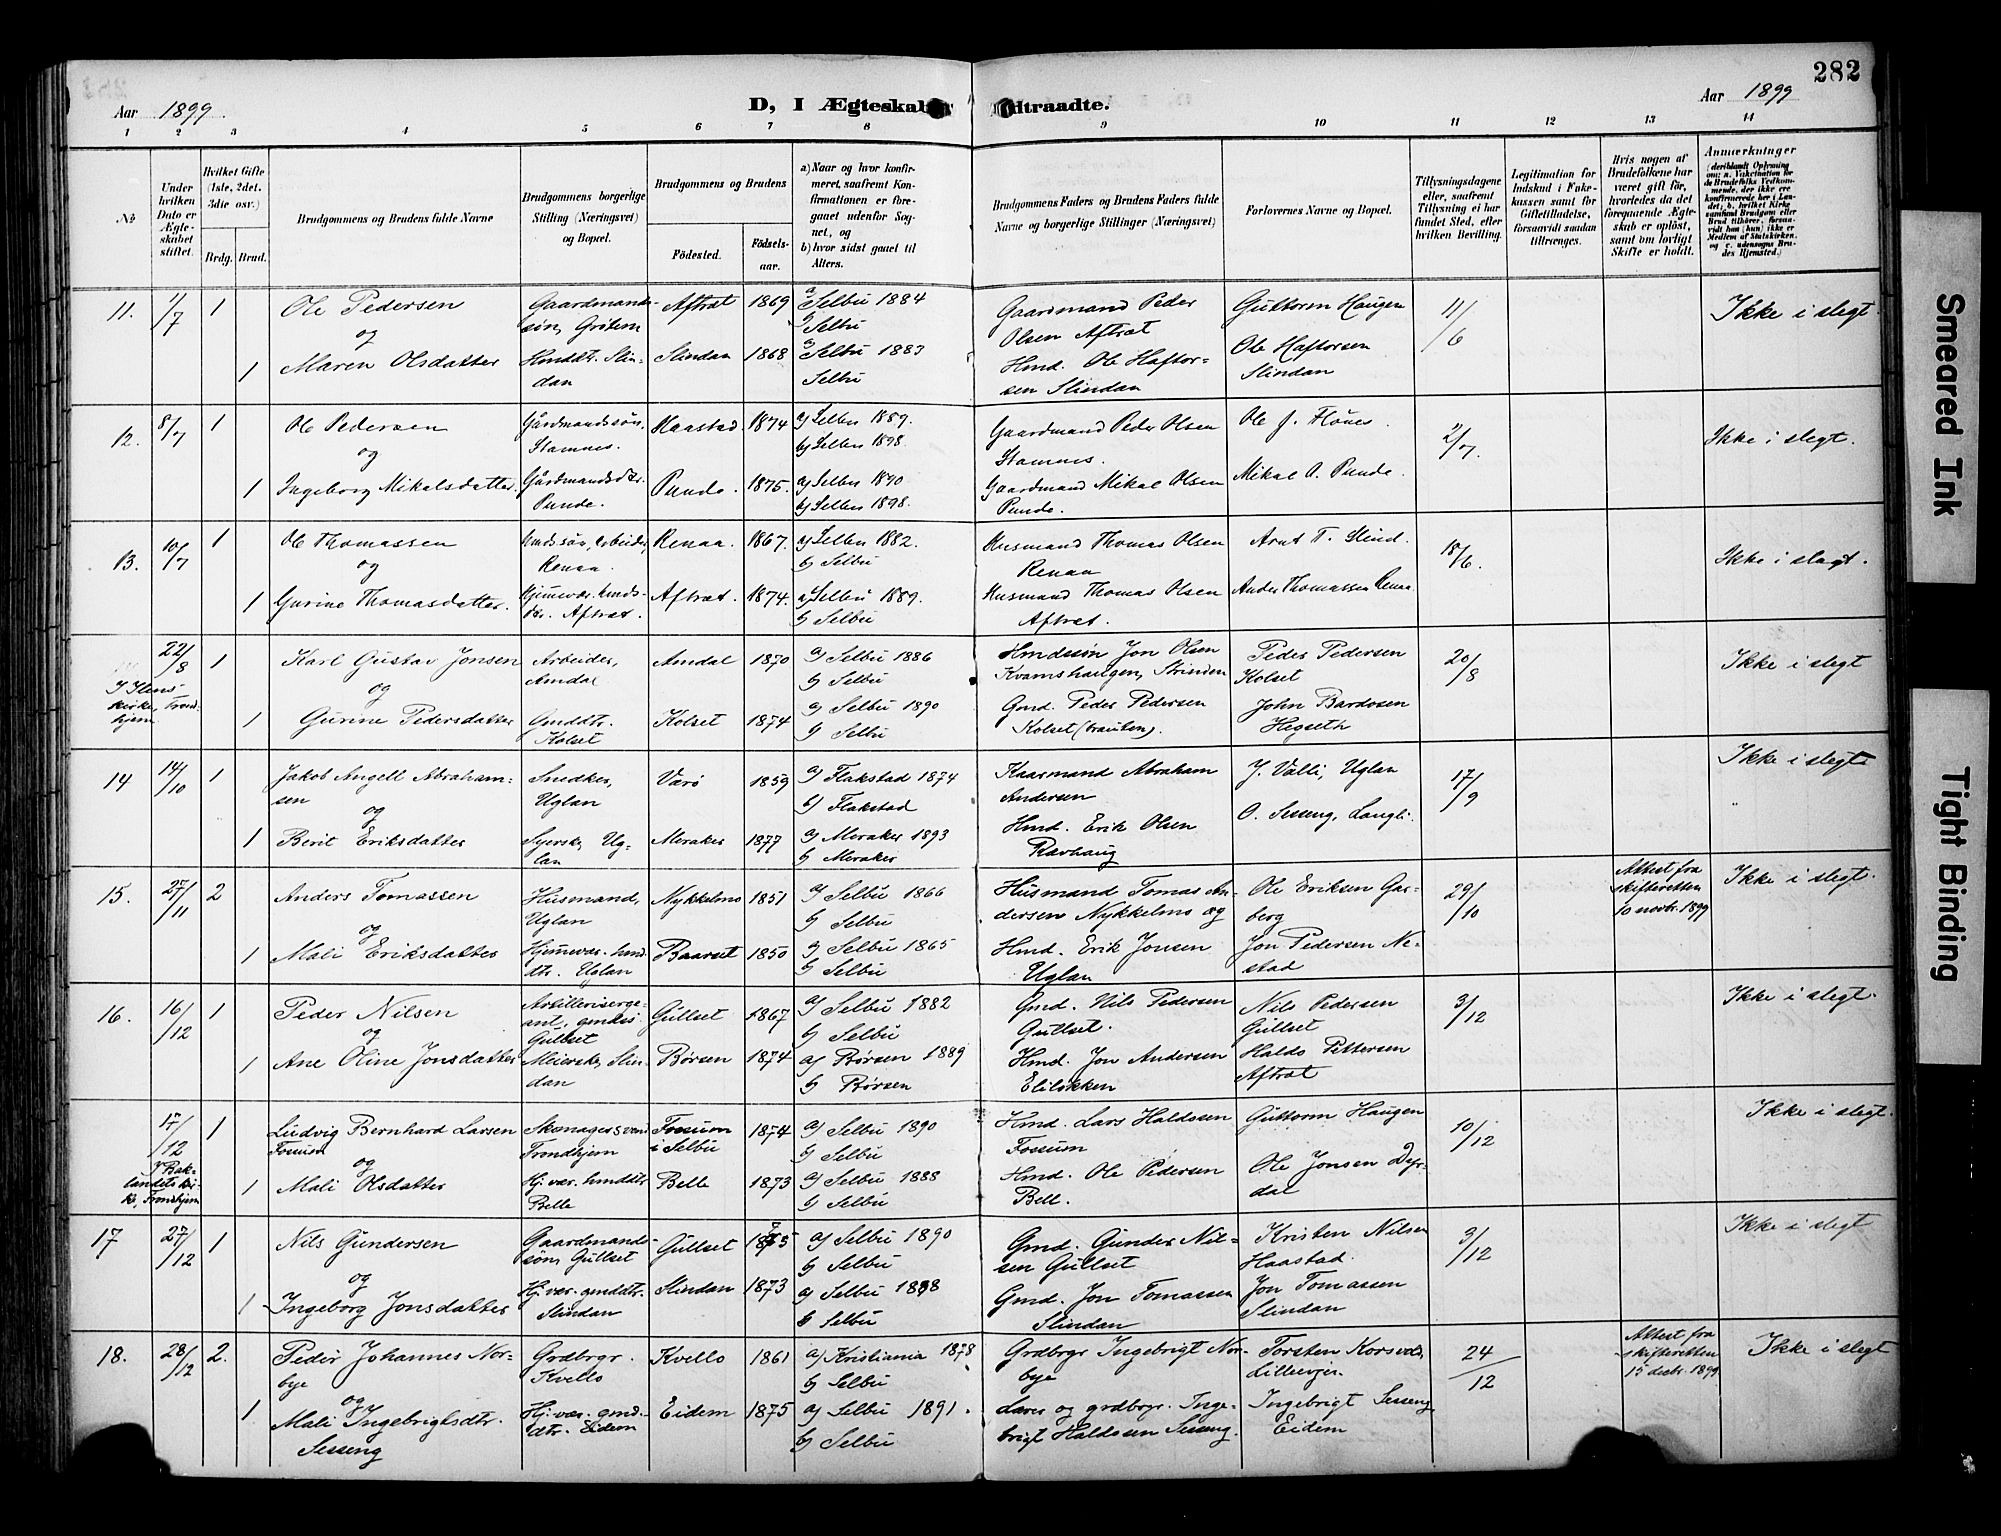 282
Aar 1899.
D, I Ægteskab Indtraadte.
Aar 1899
1 2 3 4 5 6 7 8 9 10 11 12 13 14
№
Under hvilken Dato er Ægteskabet stiftet.
Hvilket Gifte (1ste, 2det, 3die osv.)
Brdg. Brud.
Brudgommens og Brudens fulde Navne
Brudgommens borgerlige Stilling (Næringsvei) og Bopæl.
Brudgommens og Brudens
Födested.
Födsels-aar.
a) Naar og hvor konfirmeret, saafremt Konfirmationen er foregaaet udenfor Sognet, og
b) hvor sidst gaaet til Alters.
Brudgommens Faders og Brudens Faders fulde Navne og borgerlige Stillinger (Næringsvei)
Forlovernes Navne og Bopæl.
Tillysningsdagene eller, saafremt Tillysning ei har fundet Sted, efter hvilken Bevilling.
Legitimation for Indskud i Enkekassen samt for Giftetilladelse, forsaavidt saadan tiltrænges.
Hvis nogen af Brudefolkene har været gift før, hvorledes da det foregaaende Ægteskab er oplöst, samt om lovligt Skifte er holdt.
Anmærkninger
(deriblandt Oplysning om: a. Vakcination for de Brudefolks Vedkommende, der ikke ere konfirmerede her i Landet; b. hvilket Kirkesamfund Brudgom eller Brud tilhörer, forsaavidt han (hun) ikke er Medlem af Statskirken, og c. udensogns Brudes Hjemsted.)
11. 1/7 1 Ole Pedersen Gaardmandssön, Gröten Aftret 1869 a) Selbu 1884 b) Selbu Gaardmand Peder Olsen Aftret Guttorm Haugen 11/6 Ikke i slegt.
og
1 Maren Olsdatter Hmddtr. Slindan Slindan 1868 a) Selbu 1883 Selbu Hmd. Ole Haftorsen Slindan Ole Haftorsen Slindan
12. 8/7 1 Ole Pedersen Gårdmandssön, Stamnes. Haastad. 1874 a) Selbu 1889. b) Selbu 1898. Gaardmand Peder Olsen Stamnes. Ole J. Flönes. 2/7. Ikke i slegt.
og
1 Ingeborg Mikalsdatter. Gårdmandsdtr. Punde. Punde. 1875. a) Selbu 1890 b) Selbu 1898. Gaardmand Mikal Olsen Punde. Mikal O. Punde.
13. 10/7 1 Ole Thomassen hmdssön, arbeider, Renaa. Renaa. 1867. a) Selbu 1882. b) Selbu Husmand Thomas Olsen Renaa Arnt T. Slind. 18/6. Ikke i slegt.
og
1 Gurine Thomasdatter. Hjemmevær. hmdsdtr. Aftret. Aftret. 1874. a) Selbu 1889. b) Selbu Husmand Thomas Olsen Aftret. Anders Thomassen Renaa
22/8 I Ilens kirke, Trondhjem 1 Karl Gustav Jonsen Arbeider, Amdal Amdal 1870 a) Selbu 1886 b) Selbu Hmdssön Jon Olsen Kvamshaugen, Strinden Peder Pedersen Kolset 20/8 Ikke i slegt
og
1 Gurine Pedersdatter Gmddtr. Kolset Kolset 1874 a) Selbu 1890 b) Selbu Gmd. Peder Pedersen Kolset (brauten). John Bardosen Hegseth
14 14/10 1 Jakob Angell Abrahamsen Snedker, Uglan Værö 1859 a) Flakstad 1874 b) Flakstad Kaarmand Abraham Andersen J. Valli, Uglan 17/9 Ikke i slegt
og
1 Berit Eriksdatter Syerske, Uglan Meraker 1877 a) Meraker 1893 b) Meraker Hmd. Erik Olsen Ravhaug O. Sesseng, Langli.
15. 27/11 2 Anders Tomassen Husmand, Uglan Nykkelmo 1851 a) Selbu 1866 b) Selbu Husmand Tomas Andersen Nykkelmo og Ole Eriksen Garberg 29/10 Attest fra skifteretten 10 novbr. 1899 Ikke i slegt.
og
1 Mali Eriksdatter Hjemmevær. hmddtr. Uglan Baarset 1850 a) Selbu 1865 b) Selbu Hmd. Erik Jonsen Uglan Jon Pedersen Nestad
16. 16/12 1 Peder Nilsen Artillerisergeant, gmdss. Gullset Gullset 1867 a) Selbu 1882 b) Selbu Gmd. Nils Pedersen Gullset. Nils Pedersen Gullset 3/12 Ikke i slegt.
og
1 Ane Oline Jonsdatter Meierske, Slindan Börsen 1874 a) Börsen 1889 b) Börsen Hmd. Jon Andersen Elilökken Haldo Pettersen Aftret
17/12 I Baklandets kirke, Trondhjem 1 Ludvig Bernhard Larsen Fossum Skomagersvend Trondhjem Fossum i Selbu 1874 a) Selbu 1890 b) Selbu Hmd. Lars Haldosen Fossum Guttorm Haugen 10/12 Ikke i slegt.
og
1 Mali Olsdatter Hj. vær. hmddtr. Belle Belle 1873 a) Selbu 1888 b) Selbu Hmd. Ole Pedersen Bell. Ole Jonsen Dyrdal
17 27/12 1 Nils Gundersen Gaardmandssön, Gullset Gullset 1875 a) Selbu 1890 b) Selbu Gmd. Gunder Nilsen Gullset Kristen Nilsen Haastad. 3/12 Ikke i slegt
og
1 Ingeborg Jonsdatter Hj. vær. gmddtr. Slindan Slindan 1873 a) Selbu 1888 b) Selbu Gmd. Jon Tomassen Slindan Jon Tomassen Slindan
18. 28/12 2. Peder Johannes Norbye Grdbrgr. Kvello Kvello 1861 a) Kristiania 1878 b) Selbu Grdbrgr Ingebrigt Norbye Torsten Korsvold, Lillevjer. 24/12 Attest fra skifteretten 15 decbr. 1899 Ikke i slegt
og
1 Mali Ingebrigtsdtr. Sesseng Hj. vær. gmddtr. Eidem Eidem 1875 a) Selbu 1891. b) Selbu Lærer og grdbrgr. Ingebrigt Haldosen Sesseng. Ingebrigt Sesseng Eidem
Smeared Ink
Tight Binding